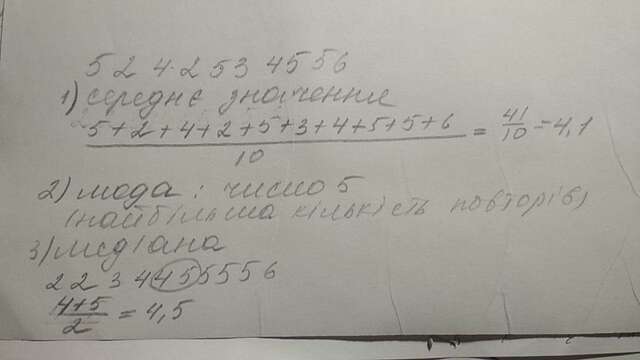 5 2 4 2 5 3 4 5 5 6
1) середнє значення
5+2+4+2+5+3+4+5+5+6 / 10 = 41/10 = 4,1
2) мода : число 5
(найбільша кількість повторів)
3) медіана
2 2 3 4 4 5 5 5 5 6
4+5 / 2 = 4,5